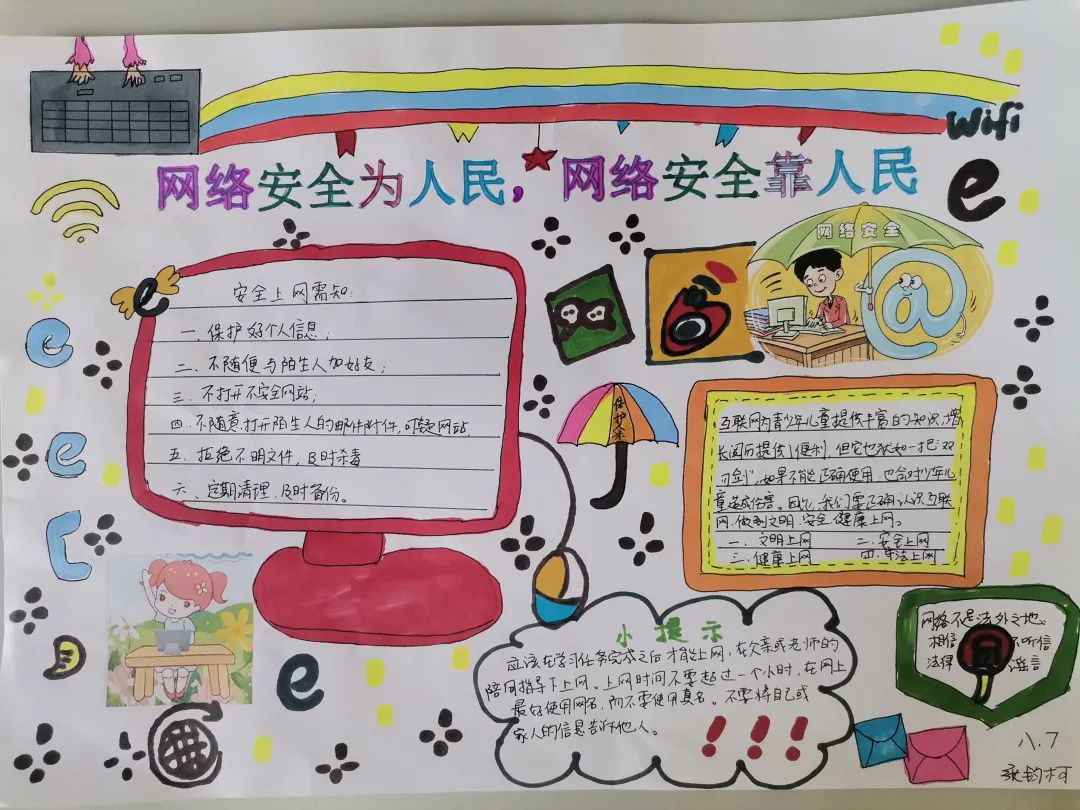 wifi
网络安全为人民，网络安全靠人民
e
网络安全
@
e
安全上网需知：
一、保护好个人信息；
二、不随便与陌生人加好友；
三、不打开不安全网站；
四、不随意打开陌生人的邮件附件，可疑网站.
五、拒绝不明文件，及时杀毒
六、定期清理，及时备份。
e
e
保护伞
互联网为青少年儿童提供丰富的知识,增
长阅历提供了便利，但它也犹如一把"双
刃剑"，如果不能正确使用，也会对少年儿
童造成伤害。因此，我们要正确认识互联
网，做到文明、安全、健康上网。
一、文明上网 二、安全上网
三、健康上网 四、守法上网
e
小提示
应该在学习任务完成之后才能上网，在父亲或老师的
陪同指导下上网。上网时间不要超过一个小时，在网上
最好使用网名，而不要使用真名。不要将自己或
家人的信息告诉他人。
!!!
网络不是法外之地、
相信 不听信
法律 谣言
八.7